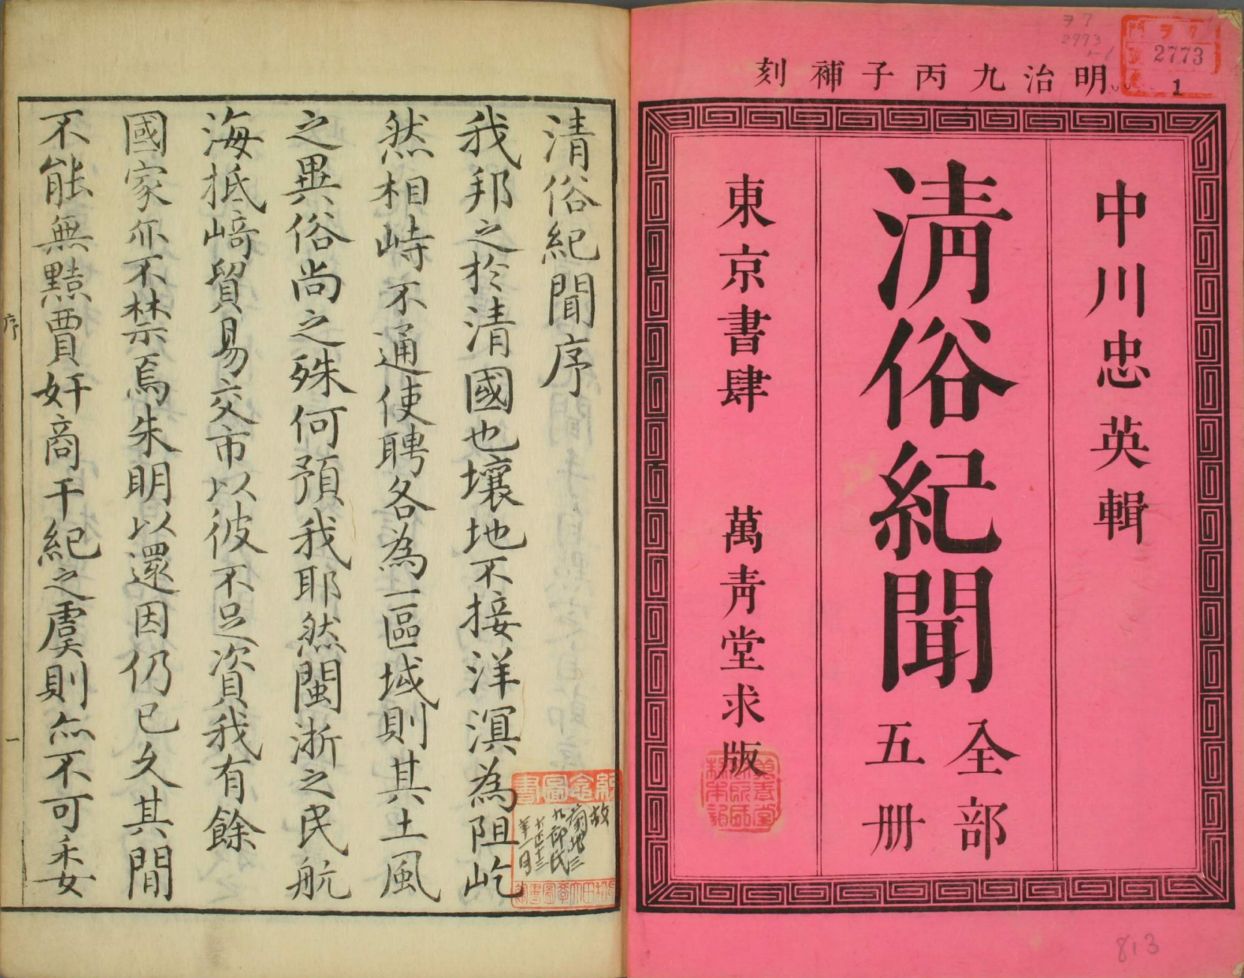 明治九丙子補刻
中川忠英輯
清俗紀聞
全部
五册
東京書肆 萬青堂求版
2773
1
813
清俗紀聞序
我邦之於清國也壤地不接洋溟為阻屹
然相峙不通使聘各為一區域則其土風
之異俗尚之殊何預我耶然閩浙之民航
海抵﨑貿易交市以彼不足資我有餘
國家亦不禁焉朱明以還因仍已久其間
不能無黠賈奸商干紀之虞則亦不可委
序
一